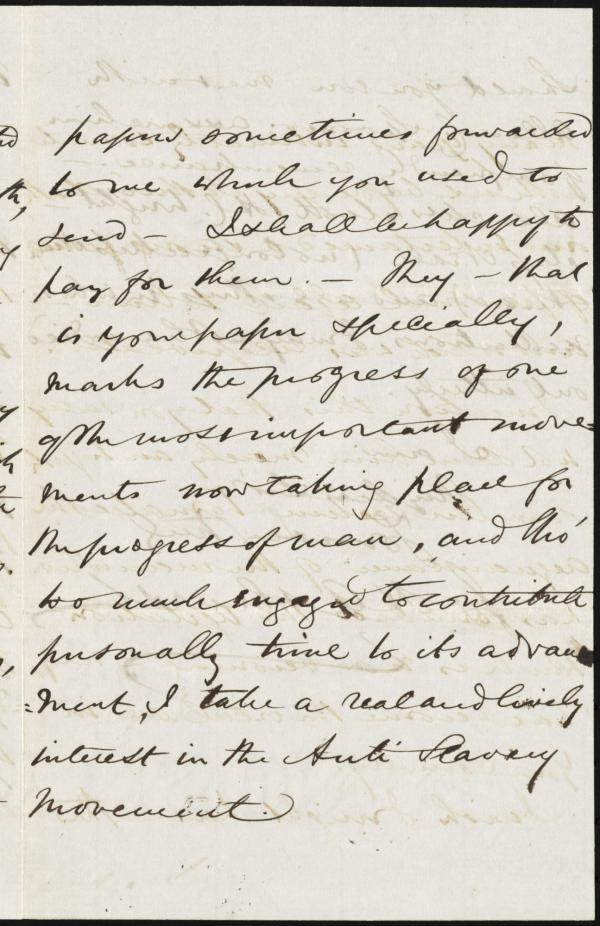 papers sometimes forwarded
to me which you used to
send – I shall be happy to
pay for them. – They – that
is your paper specially,
marks the progress of one
of the most important move=
ments now taking place for
the progress of man, and tho'
too much engaged to contribute
personally time to its advance
=ment, I take a real and lively
interest in the Anti Slavery
Movement.